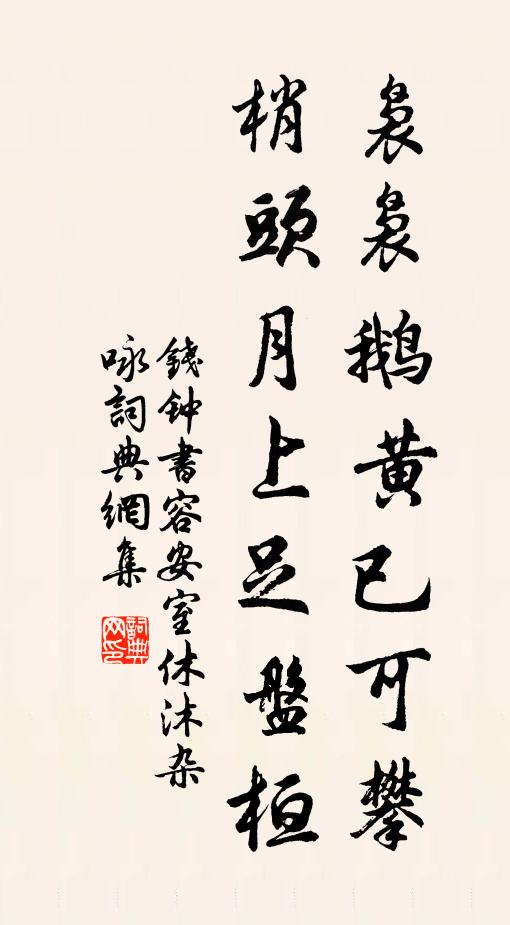 袅袅鹅黄已可攀
梢頭月上足盤桓
錢钟書容安室休沐杂
咏詞典網集
詞典网印